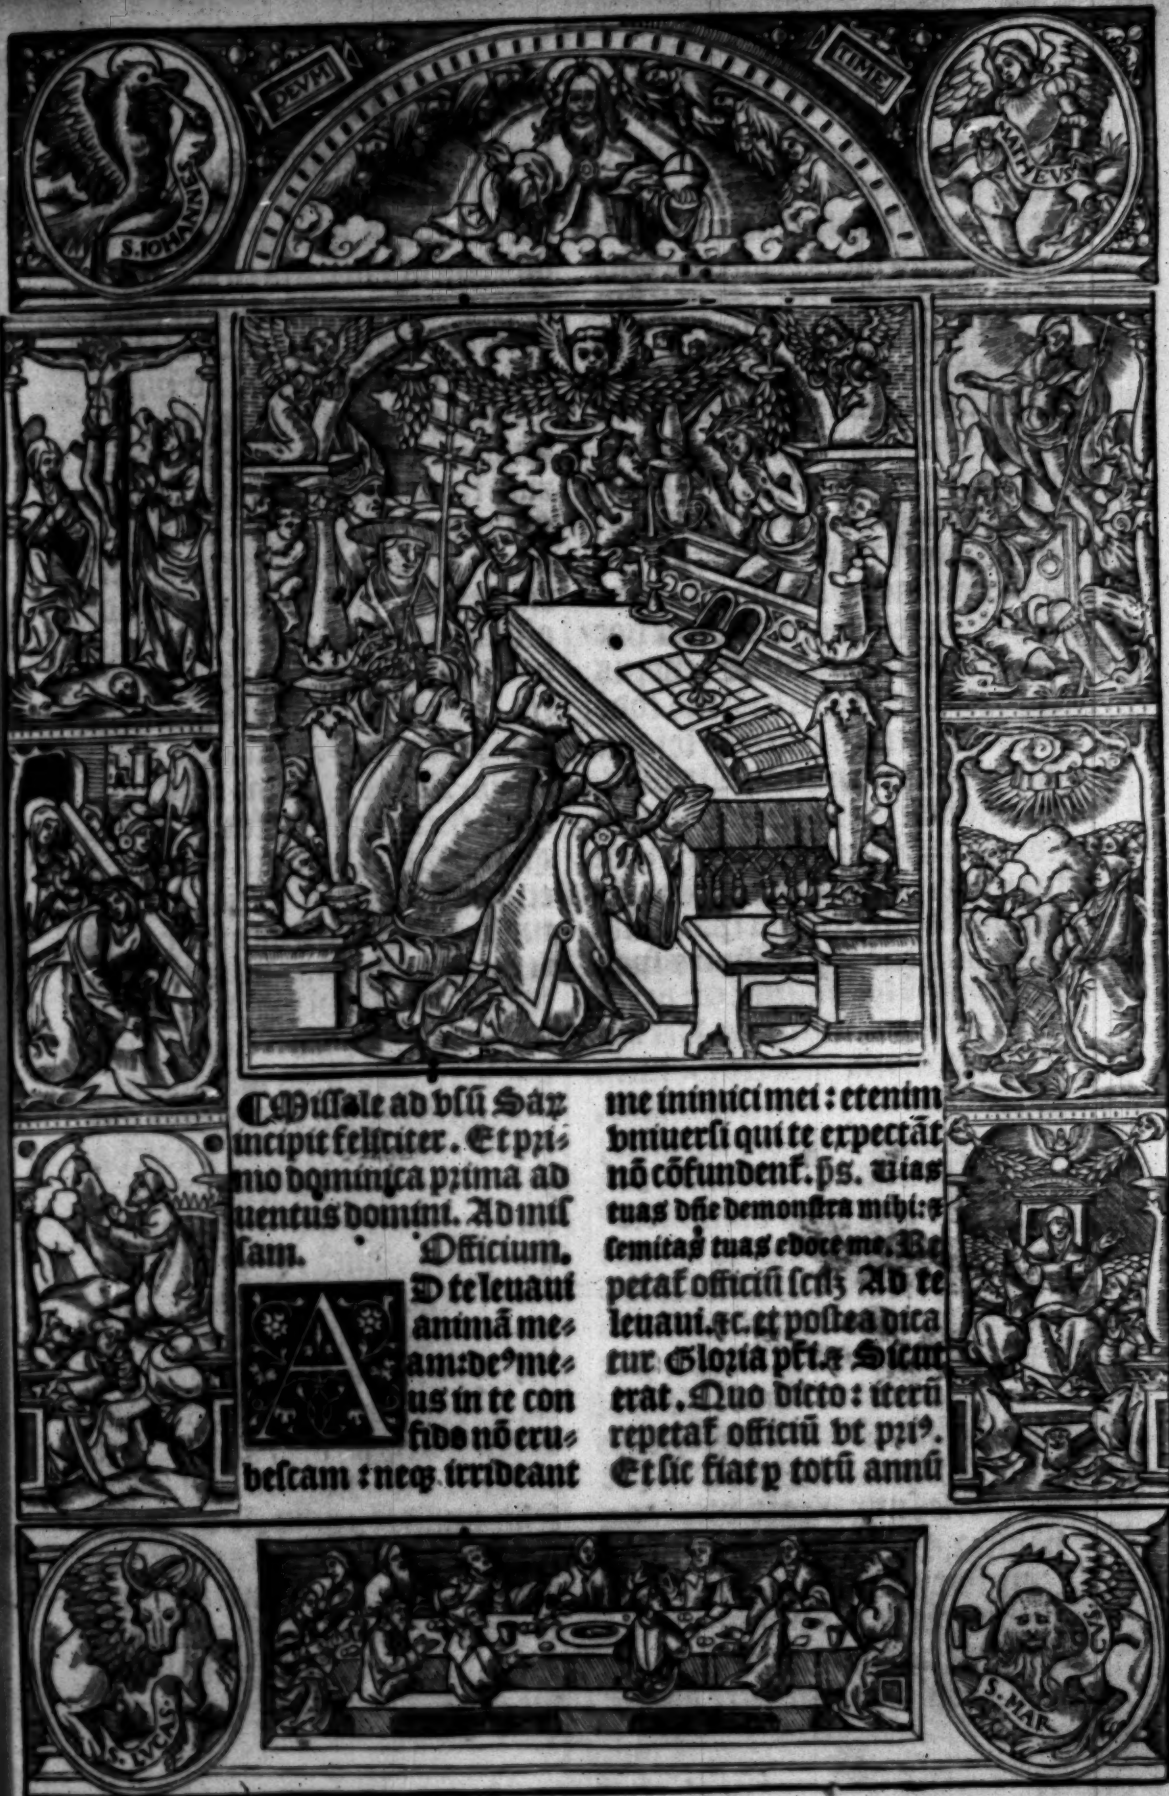 DEVM
TIME
S. IOHANNES
MATHEVS
¶Missale ad vsū Saꝝ
incipit feliciter. Et pri⸗
mo dominica prima ad
uentus domini. Ad miſ
ſam. Officium.
AD te leuaui
animā me⸗
am: deꝰ me⸗
us in te con
fido nō eru⸗
beſcam : neqꝫ irrideant
me inimici mei : etenim
vniuerſi qui te expectāt
nō cōfundent̄. p̄s. Uias
tuas dn̄e demonſtra mihi: ⁊
ſemitas tuas edoce me. Re
petat̄ officiū ſcilꝫ Ad te
leuaui. ⁊c. et poſtea dica
tur Gloria pr̄i. ⁊ Sicut
erat. Quo dicto : iterū
repetat̄ officiū vt priꝰ.
Et ſic fiat ꝑ totū annū
S. LVCAS.
S. MAR
CVS